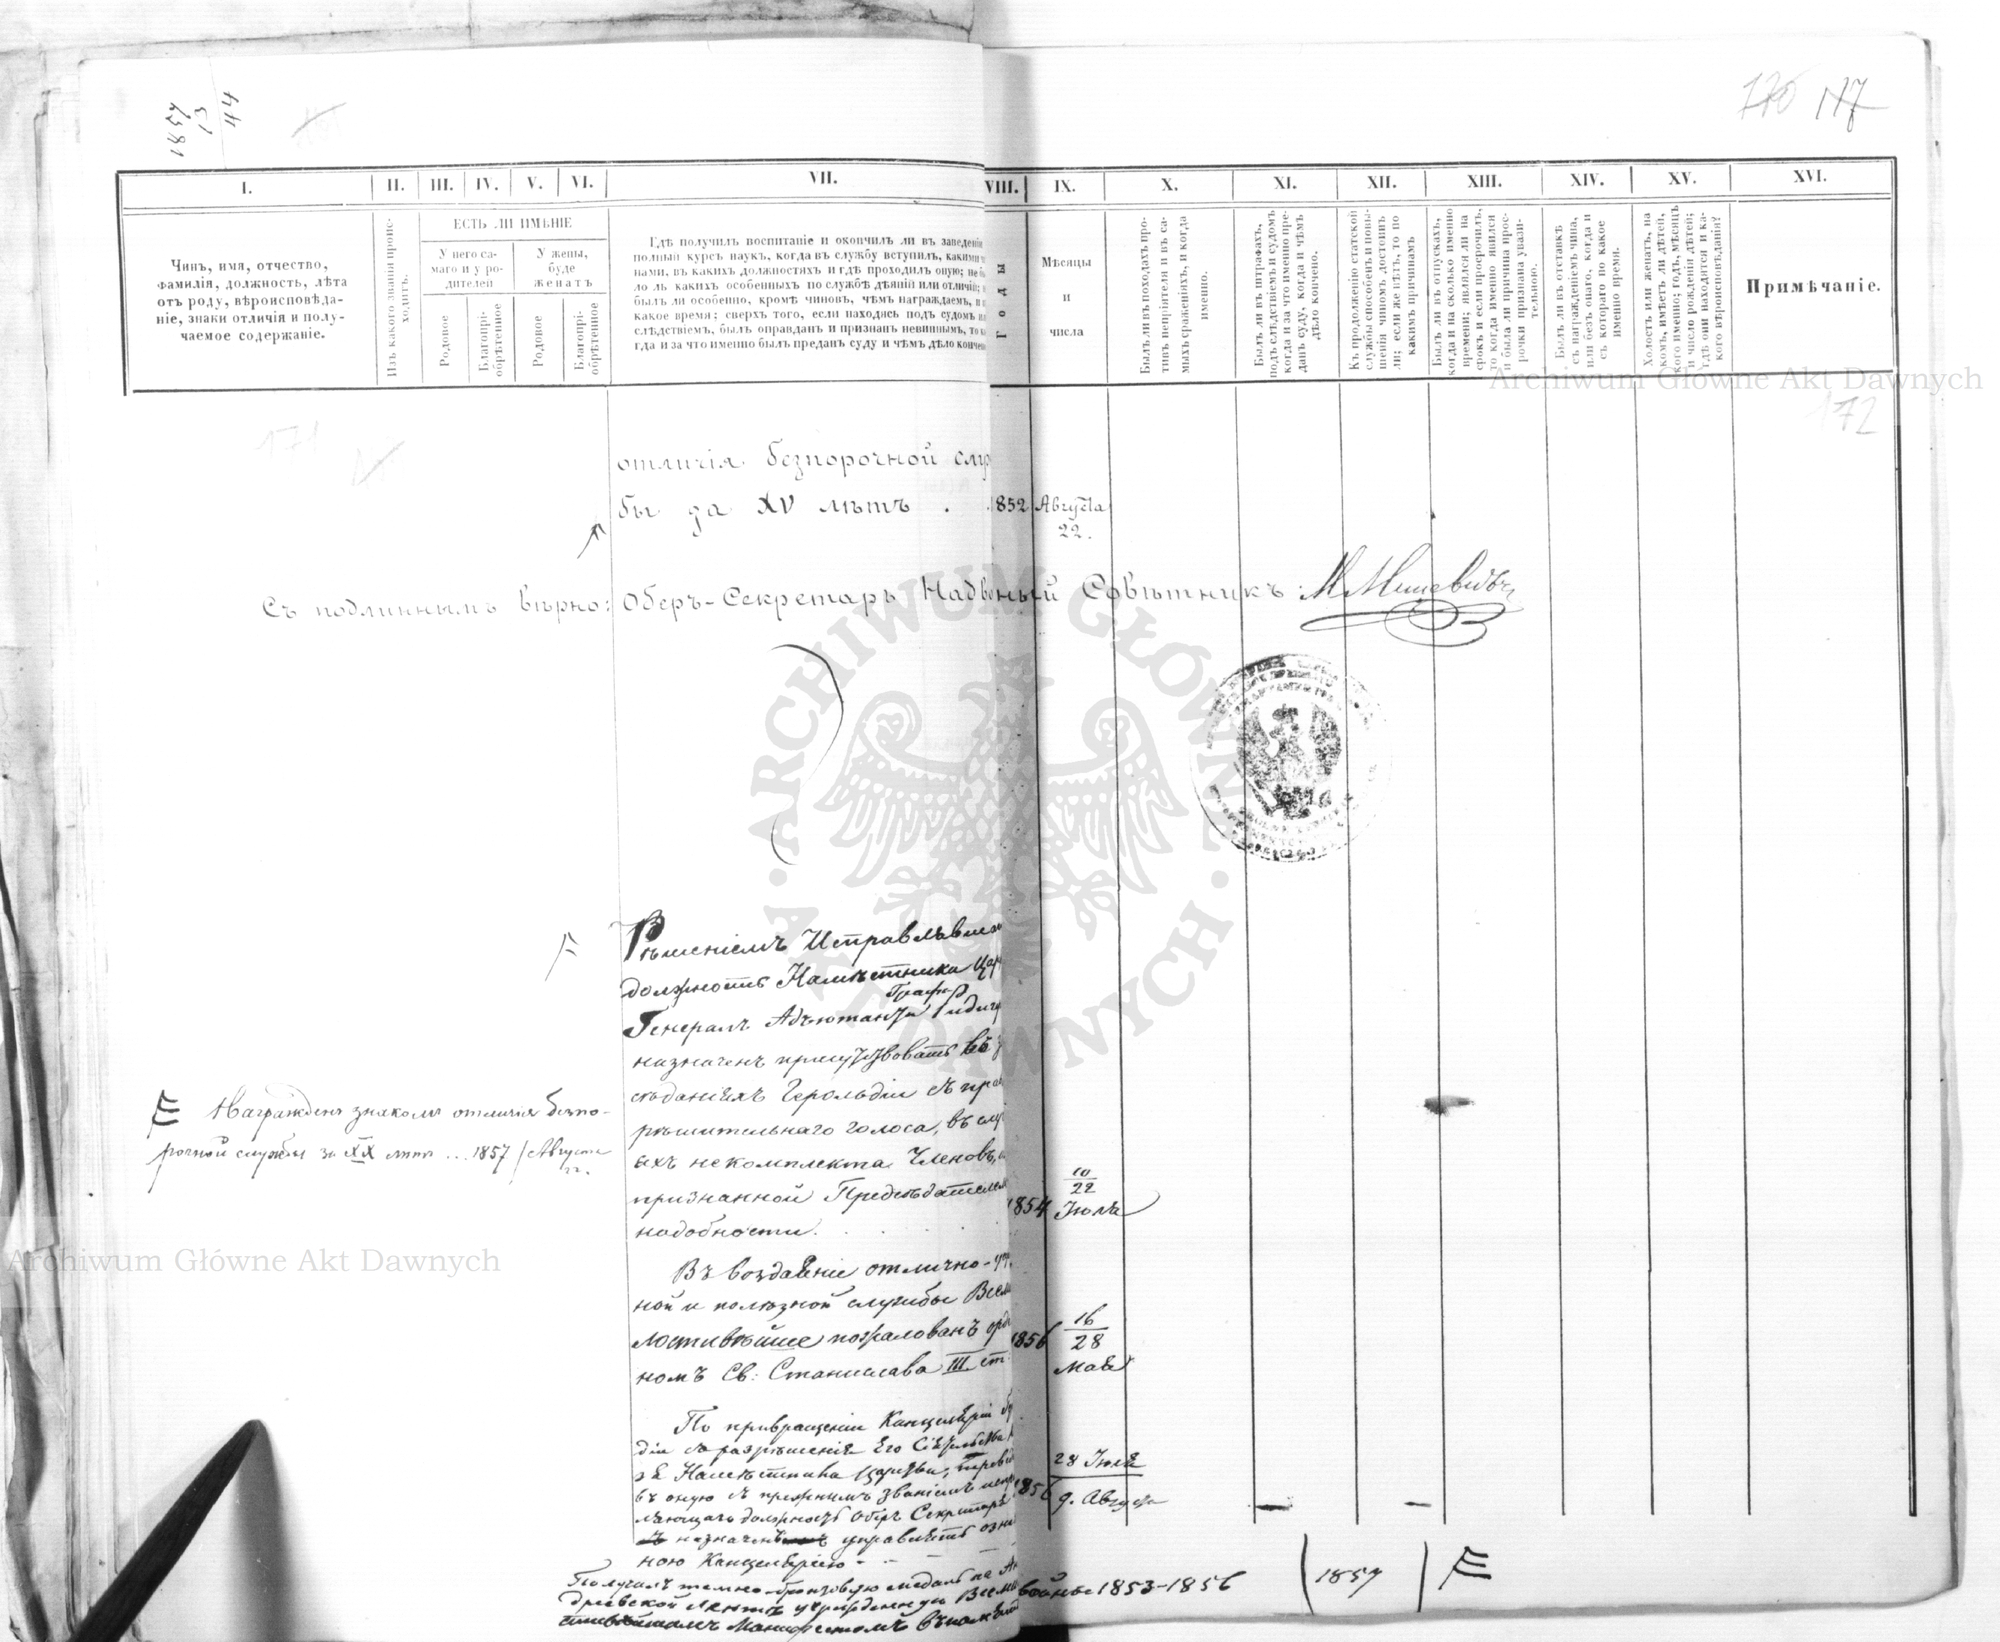 1857
13
44
170 117
I. II. III. IV. V. VI. VII. VIII. IX. X. XI. XII. XIII. XIV. XV. XVI.
Чинъ, имя, отчество,
фамилія, должность, лѣта
отъ роду, вѣроисповѣда-
ніе, знаки отличія и полу-
чаемое содержаніе.
Изъ какого званія проис-
ходитъ.
ЕСТЬ ЛИ ИМѢНІЕ
У него са-
маго и у ро-
дителей
У жены,
буде
женатъ
Родовое
Благопрі-
обрѣтенное
Родовое
Благопрі-
обрѣтенное
Гдѣ получилъ воспитаніе и окончилъ ли въ заведеніи
полный курсъ наукъ, когда въ службу вступилъ, какими ч
нами, въ какихъ должностяхъ и гдѣ проходилъ оную; не бы
ло ль какихъ особенныхъ по службѣ дѣяній или отличій;
былъ ли особенно, кромѣ чиновъ, чѣмъ награждаемъ, и въ
какое время; сверхъ того, если находясь подъ судомъ и
слѣдствіемъ, былъ оправданъ и признанъ невиннымъ, то к
гда и за что именно былъ преданъ суду и чѣмъ дѣло кончен
Годы
Мѣсяцы
и
числа
Былъ ли въ походахъ про-
тивъ непріятеля и въ са-
мыхъ сраженіяхъ, и когда
именно.
Былъ ли въ штрафахъ,
подъ слѣдствіемъ и судомъ
когда и за что именно пре-
данъ суду, когда и чѣмъ
дѣло кончено.
Къ продолженію статской
службы способенъ и повы-
шенія чиномъ достоинъ
ли; если же нѣтъ, то по
какимъ причинамъ
Былъ ли въ отпускахъ,
когда и на сколько именно
времени; являлся ли на
срокъ и если просрочилъ,
то когда именно явился
и была ли причина прос-
рочки признана уважи-
тельною.
Былъ ли въ отставкѣ
съ награжденіемъ чина,
или безъ онаго, когда и
съ котораго по какое
именно время.
Холостъ или женатъ, на
комъ, имѣетъ ли дѣтей,
кого именно; годъ, мѣсяцъ
и число рожденія дѣтей;
гдѣ они находятся и ка-
кого вѣроисповѣданія?
Примѣчаніе.
Archiwum Główne Akt Dawnych
171
172
отличія безпорочной слу
бы за XV лѣтъ . 1852 Августа
22.
Съ подлиннымъ вѣрно: Оберъ-Секретарь Надворный Совѣтникъ:
ARCHIWUM GŁÓWNE AKT DAWNYCH
Рѣшеніемъ Исправлявша
должность Намѣстника Цар
Графа
Генералъ Адъютанта Ридиге
назначенъ присутствовать въ з
сѣданіяхъ Герольдіи съ пра
рѣшительнаго голоса, въ слу
ахъ некомплекта Членовъ,
признанной Предсѣдателем
надобности. 1854 10/22 Іюля
Награжденъ знакомъ отличія безпо-
рочной службы за XX лѣтъ ... 1857 / Августа
22.
Archiwum Główne Akt Dawnych
Въ воздаяніе отлично-
ной и полезной службы Всем
лостивѣйше пожалованъ орде
номъ Св: Станислава III ст 1856 16/28 Мая
По превращеніи Канцеляріи
діи съ разрѣшенія Его Сіятельства
Намѣстника Царства,
въ оную съ прежнимъ званіемъ испр
ляющаго должность Оберъ Секретаря 1856 28 Іюля
9. Августа
назначенъ управлять
ною Канцеляріею
Получилъ темно-бронзовую медаль на Ан
дреевской лентѣ учрежденную Всеми войны 1853-1856 1857
Манифестомъ въ